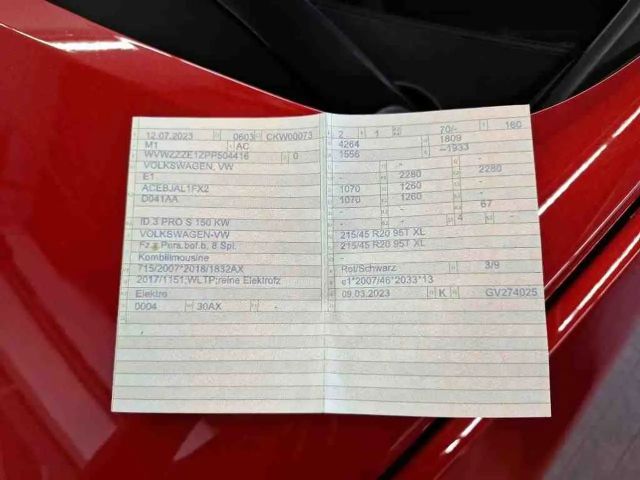 12.07.2023 0603 CKW00073
M1 AC
WVWZZZE1ZPP504416 0
VOLKSWAGEN, VW
E1
ACEBJAL1FX2
D041AA
-
ID.3 PRO S 150 KW
VOLKSWAGEN-VW
Fz.z.Pers.bef.b. 8 Spl.
Kombilimousine
715/2007*2018/1832AX
2017/1151;WLTP;reine Elektrofz
Elektro
0004 30AX -
2 1 70/- 160
4264 - 1809
1556 --1933
- - -
- 2280 - 2280
- - -
1070 1260 -
1070 1260 -
- - 67
- - 4 -
215/45 R20 95T XL
215/45 R20 95T XL
-
Rot/Schwarz 3/9
e1*2007/46*2033*13
09.03.2023 K GV274025